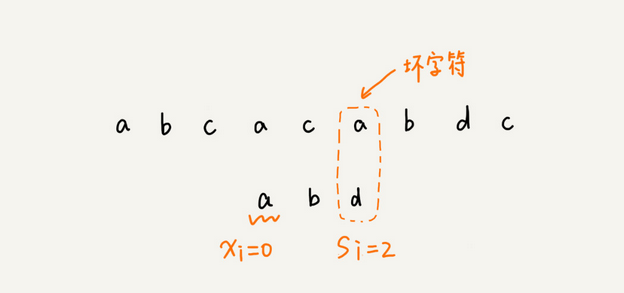 坏字符
a b c a c a b d c
a b d
Xi=0 Si=2